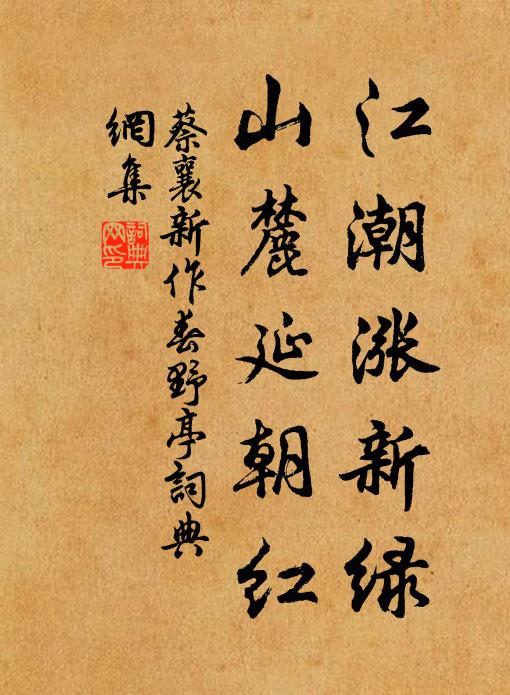 江潮涨新绿
山麓延朝红
蔡襄新作春野亭詞典
網集
詞典網印